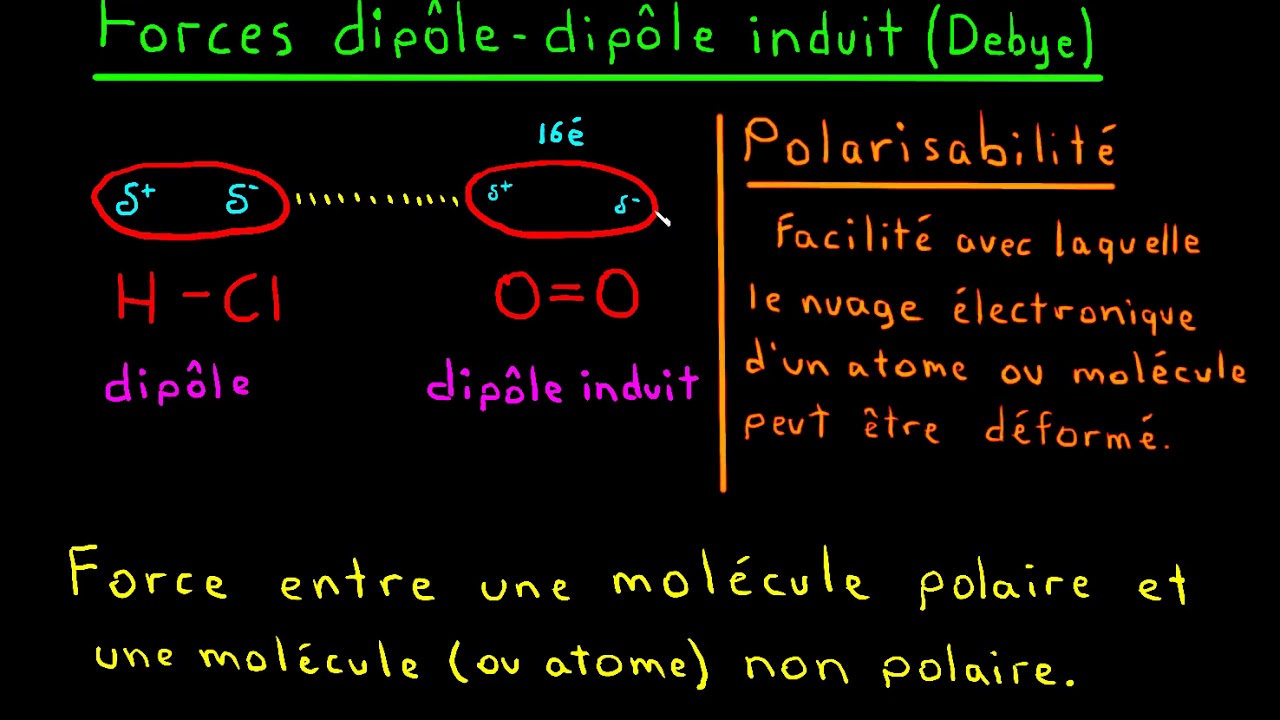 Forces dipôle-dipôle induit (Debye)
16é
δ+ δ- δ+ δ-
H-Cl O=O
dipôle dipôle induit
Polarisabilité
Facilité avec laquelle
le nuage électronique
d'un atome ou molécule
peut être déformé.
Force entre une molécule polaire et
une molécule (ou atome) non polaire.